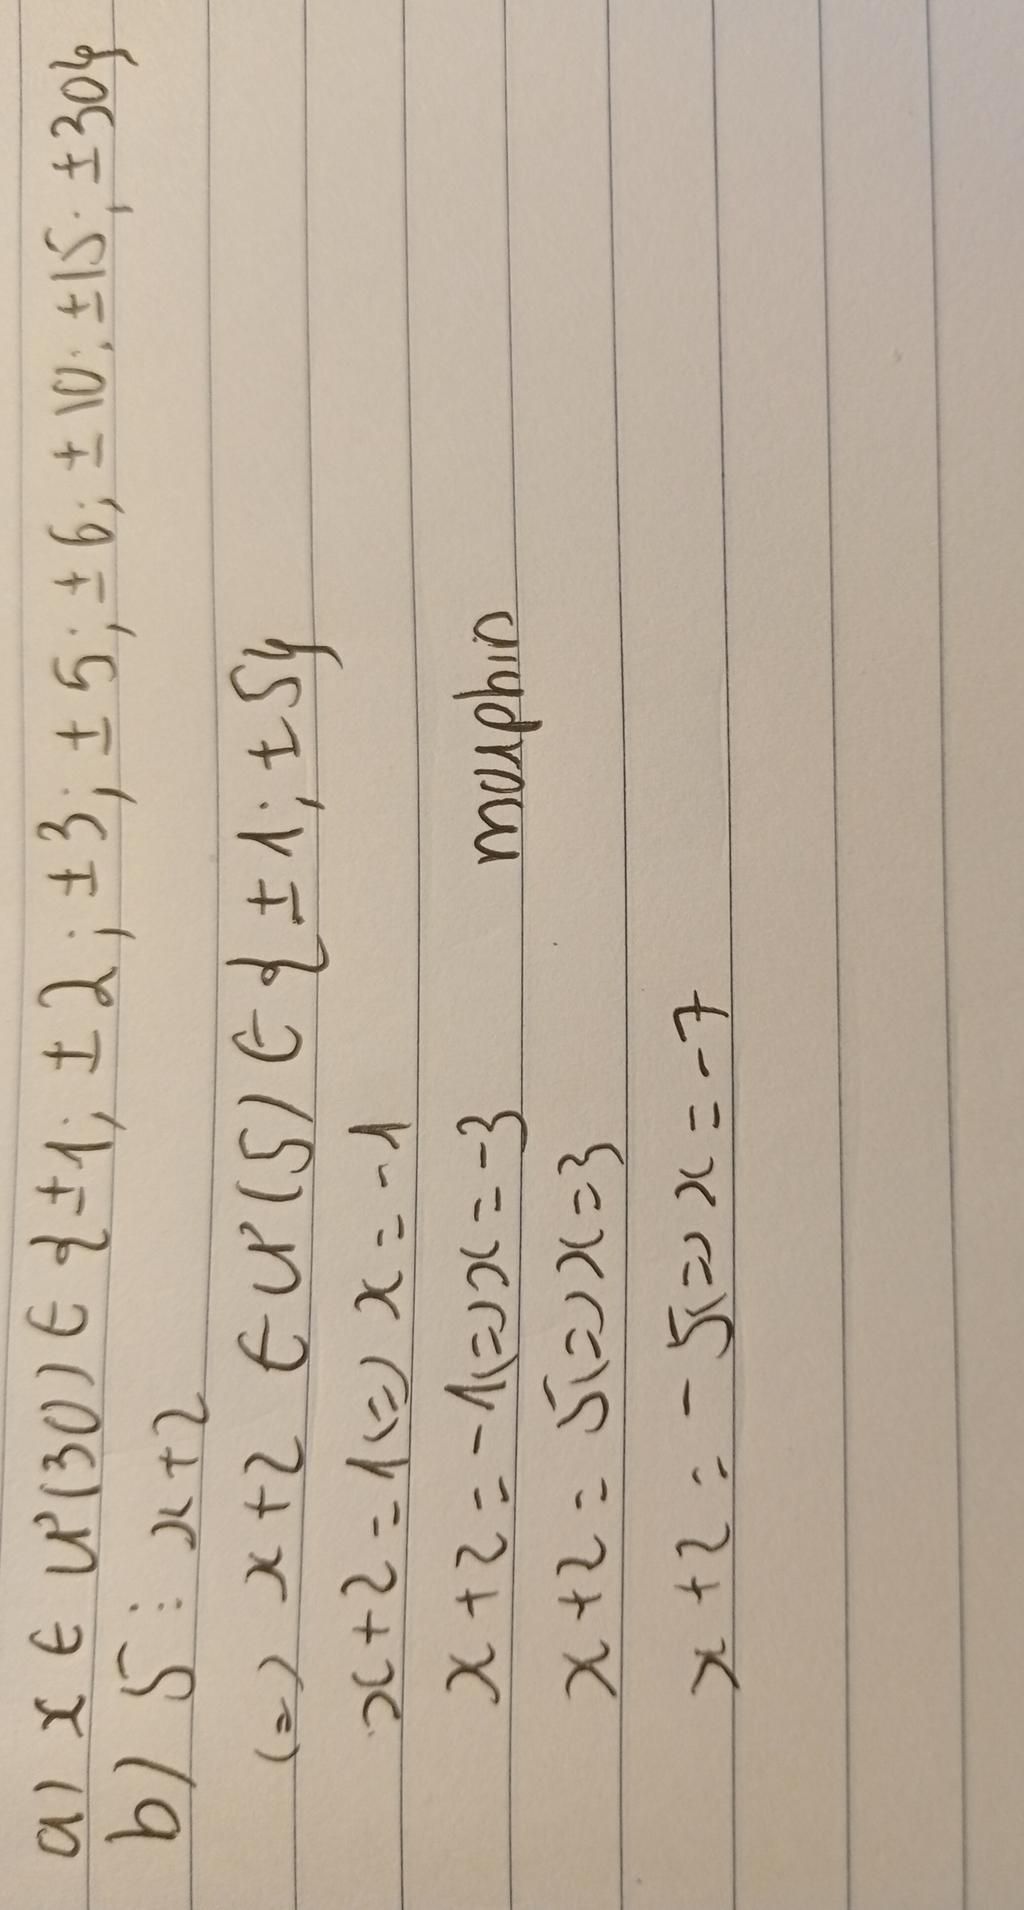 a) x ∈ Ư(30) ∈ {±1; ±2; ±3; ±5; ±6; ±10; ±15; ±30}
b) 5 ⋮ x+2
(=) x+2 ∈ Ư(5) ∈ {±1; ±5}
x+2 = 1 (=) x = -1
x+2 = -1 (=) x = -3
x+2 = 5 (=) x = 3
x+2 = -5 (=) x = -7